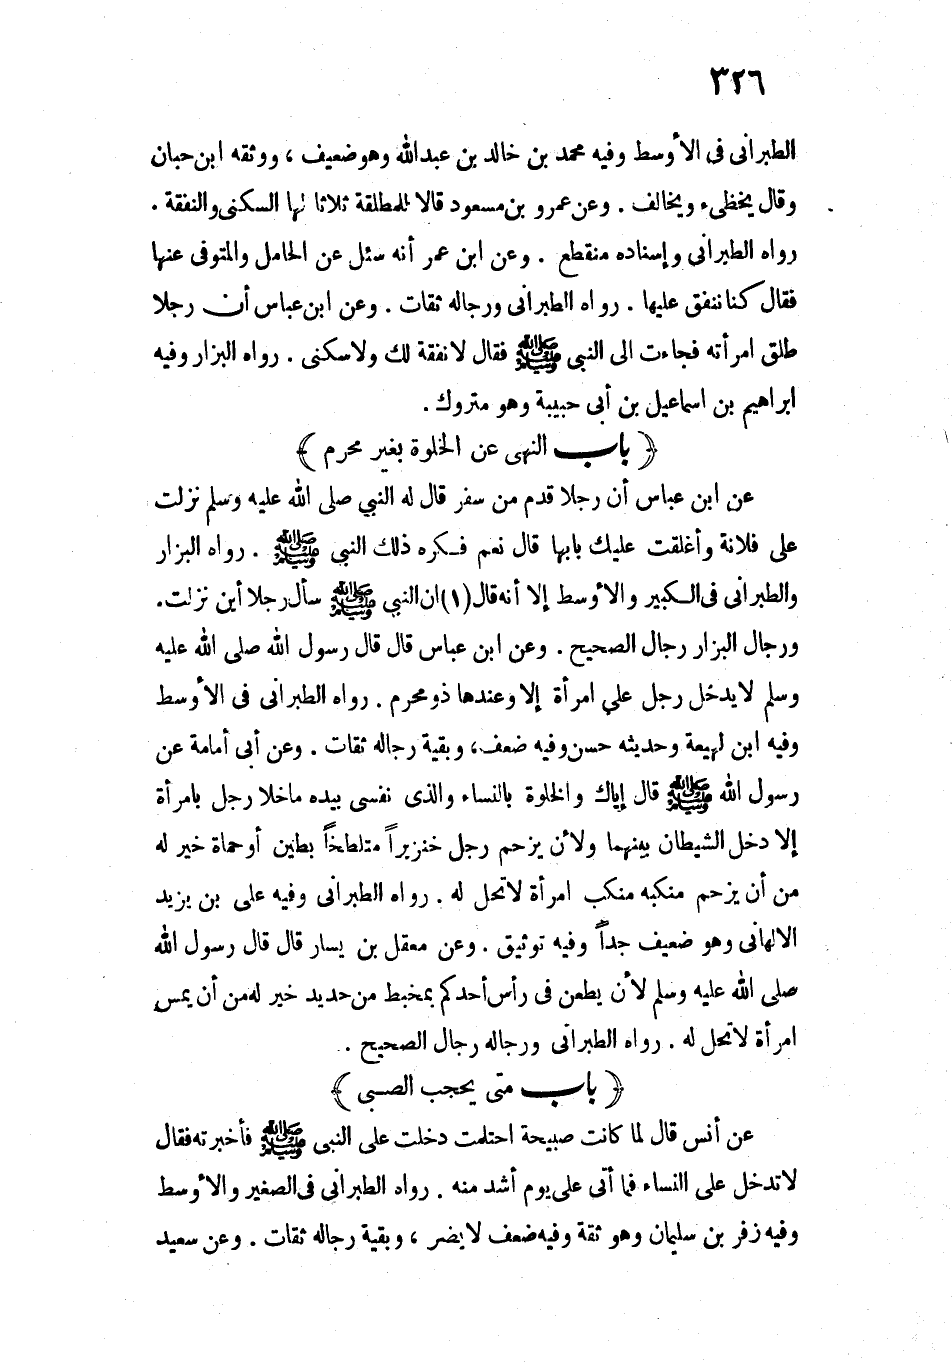 ٣٢٦
الطبراني في الأوسط وفيه محمد بن خالد بن عبدالله وهو ضعيف ، ووثقه ابن حبان
وقال يخطيء ويخالف . وعن عمرو بن مسعود قالا للمطلقة ثلاثا لها السكنى والنفقة .
رواه الطبراني وإسناده منقطع . وعن ابن عمر أنه سئل عن الحامل والمتوفى عنها
فقال كنا ننفق عليها . رواه الطبراني ورجاله ثقات . وعن ابن عباس أن رجلا
طلق امرأته فجاءت الى النبي ﷺ فقال لا نفقة لك ولا سكنى . رواه البزار وفيه
ابراهيم بن اسماعيل بن أبي حبيبة وهو متروك .
﴿ باب النهى عن الخلوة بغير محرم ﴾
عن ابن عباس أن رجلا قدم من سفر قال له النبي صلى الله عليه وسلم نزلت
على فلانة وأغلقت عليك بابها قال نعم فكره ذلك النبي ﷺ . رواه البزار
والطبراني في الكبير والأوسط إلا أنه قال (١) ان النبي ﷺ سأل رجلا أين نزلت .
ورجال البزار رجال الصحيح . وعن ابن عباس قال قال رسول الله صلى الله عليه
وسلم لا يدخل رجل على امرأة إلا وعندها ذو محرم . رواه الطبراني في الأوسط
وفيه ابن لهيعة وحديثه حسن وفيه ضعف ، وبقية رجاله ثقات . وعن أبي أمامة عن
رسول الله ﷺ قال إياك والخلوة بالنساء والذى نفسى بيده ما خلا رجل بامرأة
إلا دخل الشيطان بينهما ولأن يزحم رجل خنزيراً متلطخاً بطين أو حماة خير له
من أن يزحم منكبه منكب امرأة لا تحل له . رواه الطبراني وفيه على بن يزيد
الالهاني وهو ضعيف جداً وفيه توثيق . وعن معقل بن يسار قال قال رسول الله
صلى الله عليه وسلم لأن يطعن في رأس أحدكم بمخيط من حديد خير له من أن يمس
امرأة لا تحل له . رواه الطبراني ورجاله رجال الصحيح .
﴿ باب متى يحجب الصبى ﴾
عن أنس قال لما كانت صبيحة احتلمت دخلت على النبي ﷺ فأخبرته فقال
لا تدخل على النساء فما أتى على يوم أشد منه . رواه الطبراني في الصغير والأوسط
وفيه زفر بن سليمان وهو ثقة وفيه ضعف لا يضر ، وبقية رجاله ثقات . وعن سعيد